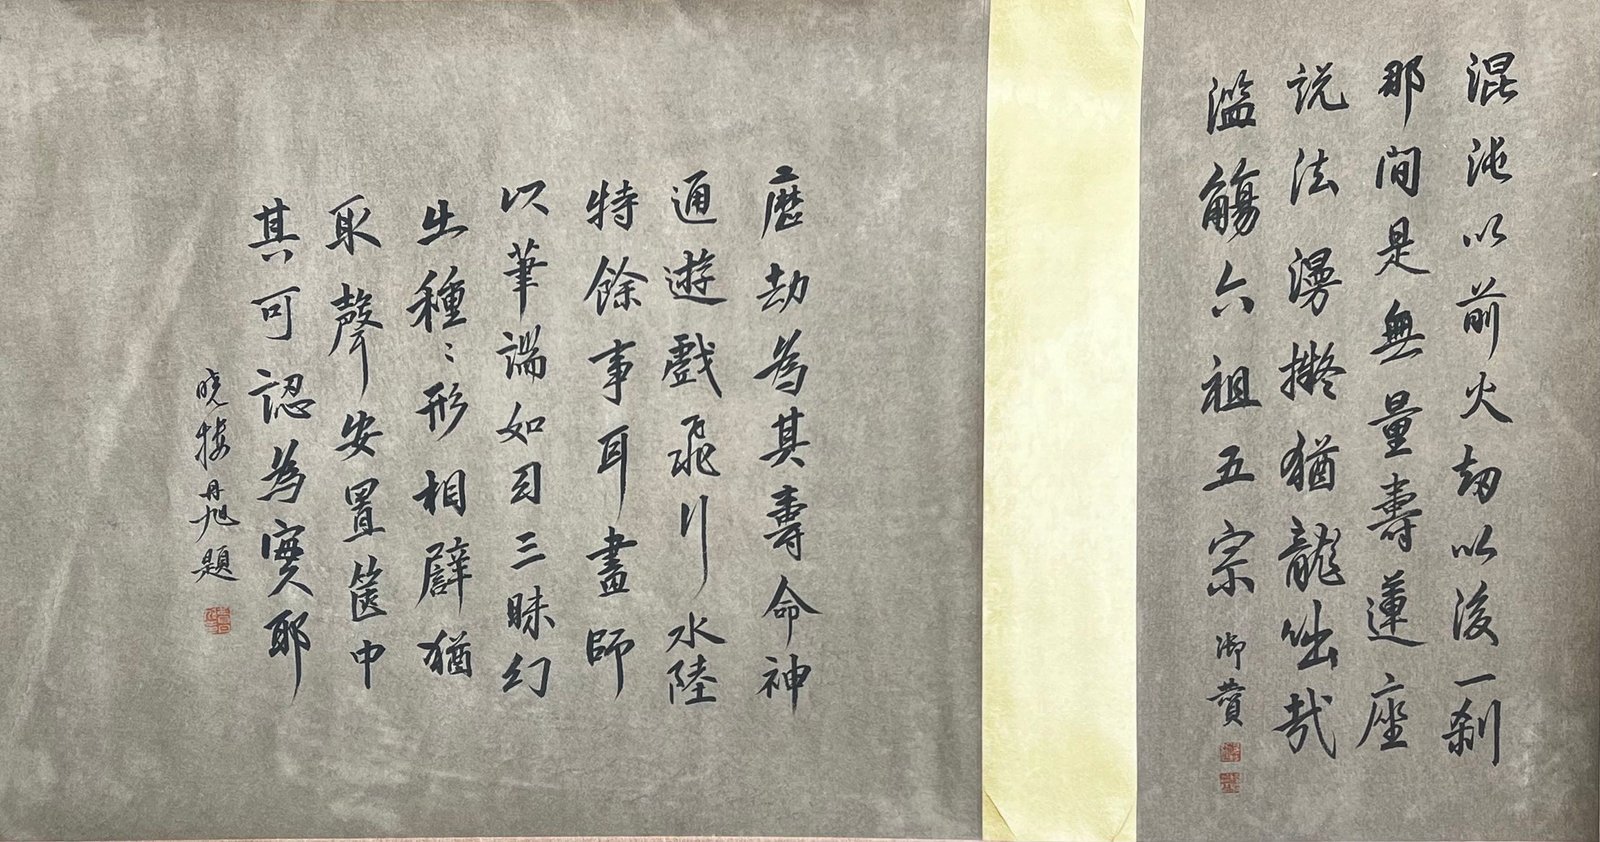 混沌以前火劫以後一剎
那間是無量壽蓮座
說法漫擬猶龍咄哉
濫觴六祖五宗 御贊
歷劫為其壽命神
通遊戲飛行水陸
特餘事耳畫師
以筆端如幻三昧幻
出種〻形相譬猶
取聲安置篋中
其可認為實耶
曉樓丹旭題